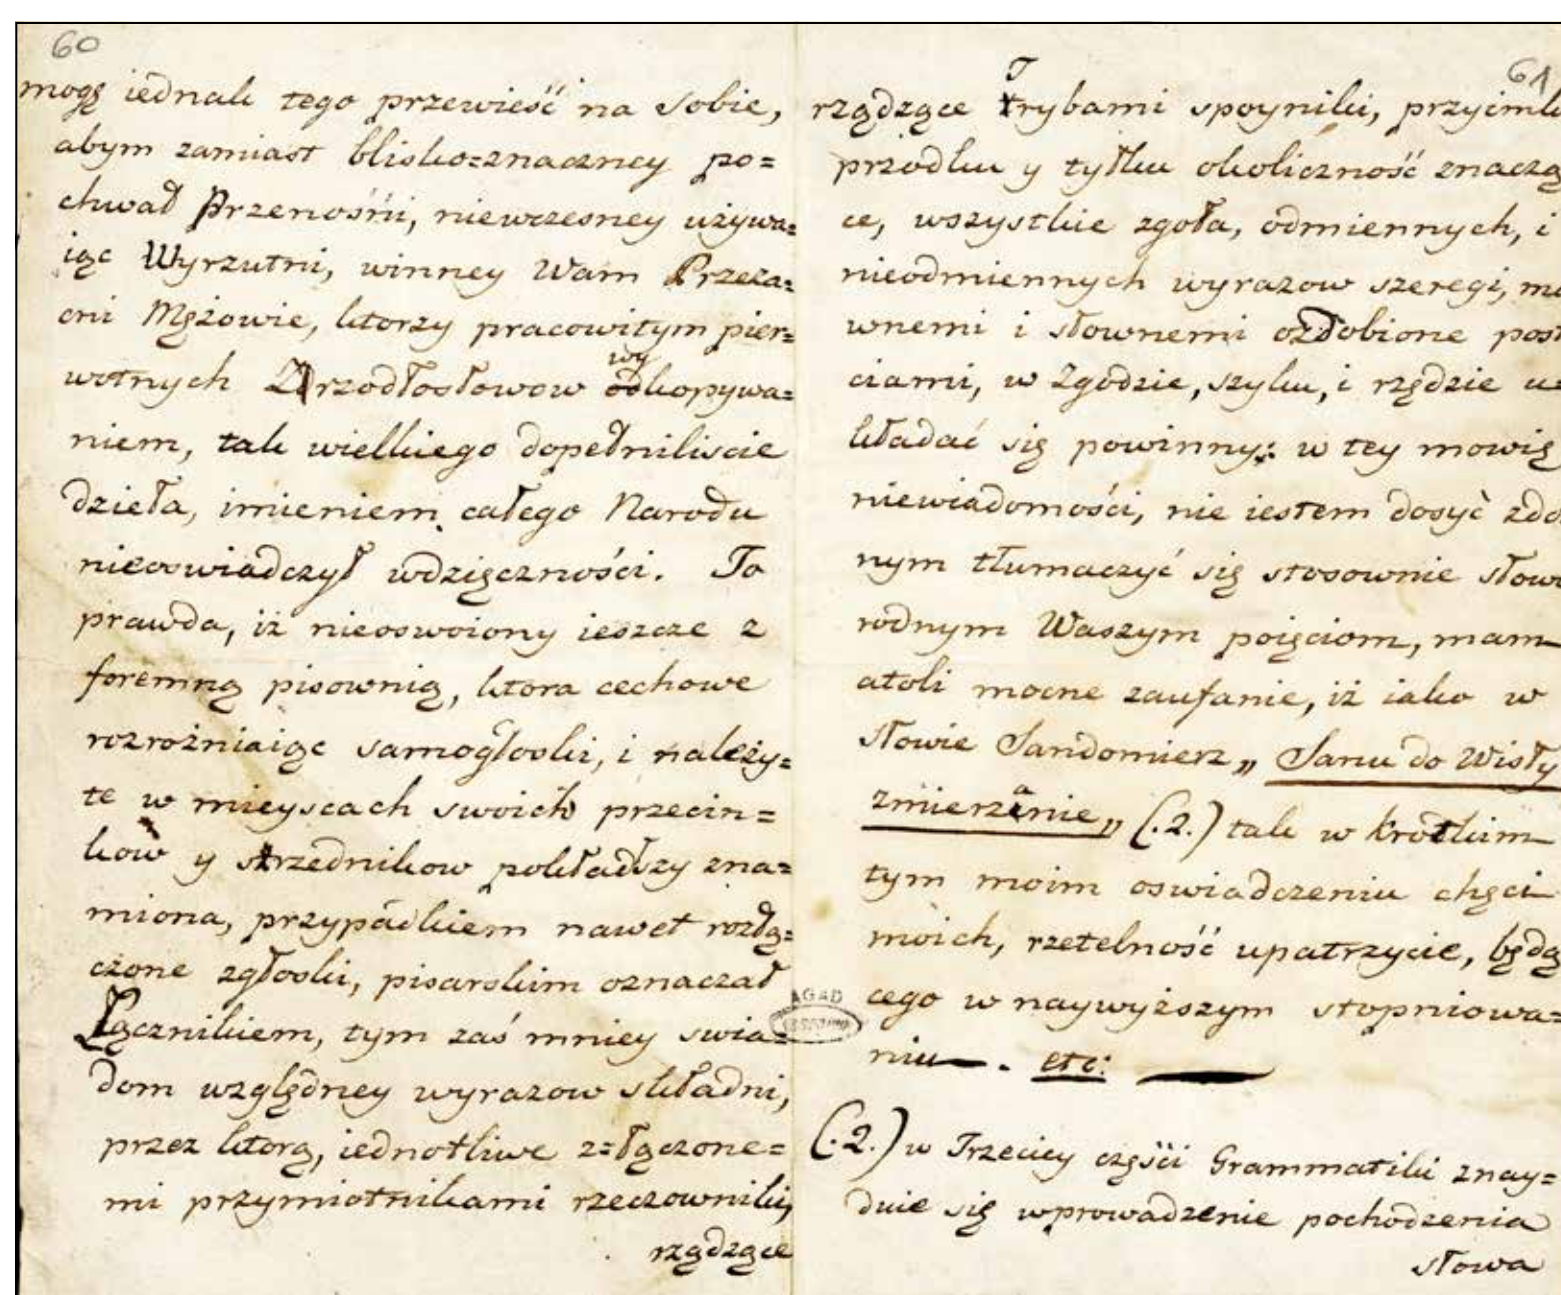 60
mogę iednak tego przewieść na sobie,
abym zamiast blisko=znaczney po=
chwał Przenośni, niewczesney używa=
iąc Wyrzutni, winney Wam Przeza=
cni Mężowie, ktorzy pracowitym pier=
wotnych Zrzodłosłowow odkopywa=
wy
niem, tak wielkiego dopełniliscie
dzieła, imieniem całego Narodu
nieoswiadczył wdzięczności. To
prawda, iż nieoswoiony ieszcze z
foremną pisownią, ktora cechowe
rozrożniaiąc samogłoski, i należy=
te w mieyscach swoich przecin=
kow y srzednikow pokładłszy zna=
miona, przypadkiem nawet rozłą=
czone zgłoski, pisarskim oznaczał
Łącznikiem, tym zaś mniey swia=
dom względney wyrazow składni,
przez ktorą, iednotliwe z=łączone=
mi przymiotnikami rzeczowniki,
rządzące
61
rządzące Trybami spoyniki, przyimk
przodku y tyłku okoliczność znaczą
ce, wszystkie zgoła, odmiennych, i
nieodmiennych wyrazow szeregi, mo
wnemi i słownemi ozdobione post
ciami, w Zgodzie, szyku, i rzędzie u=
kładać się powinny: w tey mowię
niewiadomości, nie iestem dosyć zdo
nym tłumaczyć się stosownie słowo
rodnym Waszym poięciom, mam
atoli mocne zaufanie, iż iako w
słowie Sandomierz „ Sanu do Wisły
zmierzanie „ (.2.) tak w krotkim
tym moim oswiadczeniu chęci
moich, rzetelność upatrzycie, będą
cego w naywyższym stopniowa=
niu —. etc:
AGAD
(.2.) w Trzeciey części Grammatiki znay=
duie się wprowadzenie pochodzenia
słowa